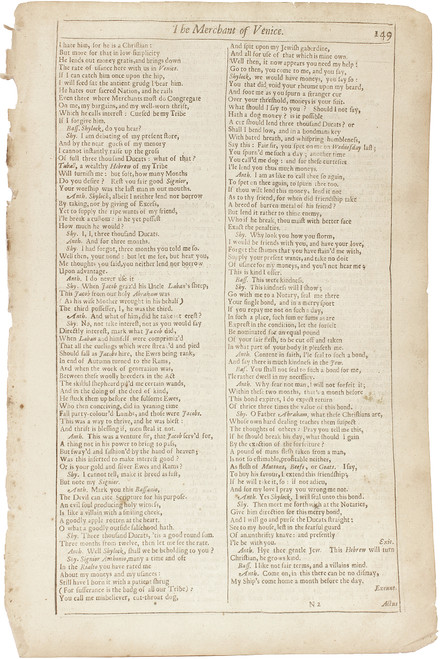 The Merchant of Venice.
149
I hate him, for he is a Christian:
But more for that in low simplicity
He lends out money gratis, and brings down
The rate of usance here with us in Venice.
If I can catch him once upon the hip,
I will feed fat the antient grudg I bear him.
He hates our sacred Nation, and he rails
Even there where Merchants most do Congregate
On me, my bargains, and my well-worn thrift,
Which he calls interest: Cursed be my Tribe
If I forgive him.
Bass. Shylock, do you hear?
Shy. I am debating of my present store,
And by the near guess of my memory
I cannot instantly raise up the gross
Of full three thousand Ducats: what of that?
Tubal, a wealthy Hebrew of my Tribe
Will furnish me: but soft, how many Months
Do you desire? Rest you fair good Signior,
Your worship was the last man in our mouths.
Anth. Shylock, albeit I neither lend nor borrow
By taking, nor by giving of Excess,
Yet to supply the ripe wants of my friend,
I'le break a custom: is he yet possest
How much he would?
Shy. I, I, three thousand Ducats.
Anth. And for three months.
Shy. I had forgot, three months you told me so.
Well then, your bond: but let me see, but hear you,
Me thoughts you said, you neither lend nor borrow
Upon advantage.
Anth. I do never use it.
Shy. When Jacob graz'd his Uncle Laban's sheep,
This Jacob from our holy Abraham was
(As his wise Mother wrought in his behalf)
The third possesser; I, he was the third.
Anth. And what of him, did he take interest?
Shy. No, not take interest, not as you would say
Directly interest, mark what Jacob did,
When Laban and himself were compremiz'd
That all the eanlings which were streak'd and pied
Should fall as Jacobs hire, the Ewes being rank,
In end of Autumn turned to the Rams,
And when the work of generation was,
Between these woolly breeders in the act
The skilful shepheard pil'd me certain wands,
And in the doing of the deed of kind,
He stuck them up before the fulsome Ewes,
Who then conceiving, did in yeaning time
Fall party-colour'd Lambs, and those were Jacobs.
This was a way to thrive, and he was blest:
And thrift is blessing if men steal it not.
Anth. This was a venture sir, that Jacob serv'd for,
A thing not in his power to bring to pass,
But sway'd and fashion'd by the hand of heaven;
Was this inserted to make interest good?
Or is your gold and silver Ewes and Rams?
Shy. I cannot tell, make it breed as fast,
But note my Signior.
Anth. Mark you this Bassanio,
The Devil can cite Scripture for his purpose.
An evil soul producing holy witness,
Is like a villain with a smiling cheek,
A goodly apple rotten at the heart.
O what a goodly outside falshood hath.
Shy. Three thousand Ducats, 'tis a good round sum.
Three months from twelve, then let me see the rate.
Anth. Well Shylock, shall we be beholding to you?
Shy. Signior Anthonio, many a time and oft
In the Rialto you have rated me
About my monies and my usances:
Still have I born it with a patient shrug
(For sufferance is the badg of all our Tribe)
You call me misbeliever, cut-throat dog,
And spit upon my Jewish gaberdine,
And all for use of that which is mine own.
Well then, it now appears you need my help:
Go to then, you come to me, and you say,
Shylock, we would have monies, you say so:
You that did void your rheume upon my beard,
And foot me as you spurn a stranger cur
Over your threshold, monyes is your suit.
What should I say to you? Should I not say,
Hath a dog money? is it possible
A cur should lend three thousand Ducats? or
Shall I bend low, and in a bondmans key
With bated breath, and whispring humbleness,
Say this: Fair sir, you spet on me on Wednesday last;
You spurn'd me such a day; another time
You call'd me dog: and for these curtesies
I'le lend you thus much monyes.
Anth. I am as like to call thee so again,
To spet on thee again, to spurn thee too.
If thou wilt lend this money, lend it not
As to thy friend, for when did friendship take
A breed of barren metal of his friend?
But lend it rather to thine enemy,
Who if he break, thou maist with better face
Exact the penalties.
Shy. Why look you how you storm,
I would be friends with you, and have your love,
Forget the shames that you have stain'd me with,
Supply your present wants, and take no doit
Of usance for my monies, and you'l not hear me;
This is kind I offer.
Bass. This were kindness.
Shy. This kindness will I show;
Go with me to a Notary, seal me there
Your single bond, and in a merry sport
If you repay me not on such a day,
In such a place, such sum or sums as are
Exprest in the condition, let the forfeit
Be nominated for an equal pound
Of your fair flesh, to be cut off and taken
In what part of your body it pleaseth me.
Anth. Content in faith, I'le seal to such a bond,
And say there is much kindness in the Jew.
Bass. You shall not seal to such a bond for me,
I'le rather dwell in my necessity.
Anth. Why fear not man, I will not forfeit it;
Within these two months, that's a month before
This bond expires, I do expect return
Of thrice three times the value of this bond.
Shy. O Father Abraham, what these Christians are,
Whose own hard dealing teaches them suspect
The thoughts of others: Pray you tell me this,
If he should break his day, what should I gain
By the exaction of the forfeiture?
A pound of mans flesh taken from a man,
Is not so estimable, profitable neither,
As flesh of Muttons, Beefs, or Goats. I say,
To buy his favour, I extend this friendship;
If he will take it, so: if not adieu,
And for my love I pray you wrong me not.
Anth. Yes Shylock, I will seal unto this bond.
Shy. Then meet me forthwith at the Notaries,
Give him direction for this merry bond,
And I will go and purse the Ducats straight:
See to my house, left in the fearful guard
Of an unthrifty knave: and presently
I'le be with you. Exit.
Anth. Hye thee gentle Jew. This Hebrew will turn
Christian, he grows kind.
Bass. I like not fair terms, and a villains mind.
Anth. Come on, in this there can be no dismay,
My Ship's come home a month before the day.
Exeunt.
N 2
Actus